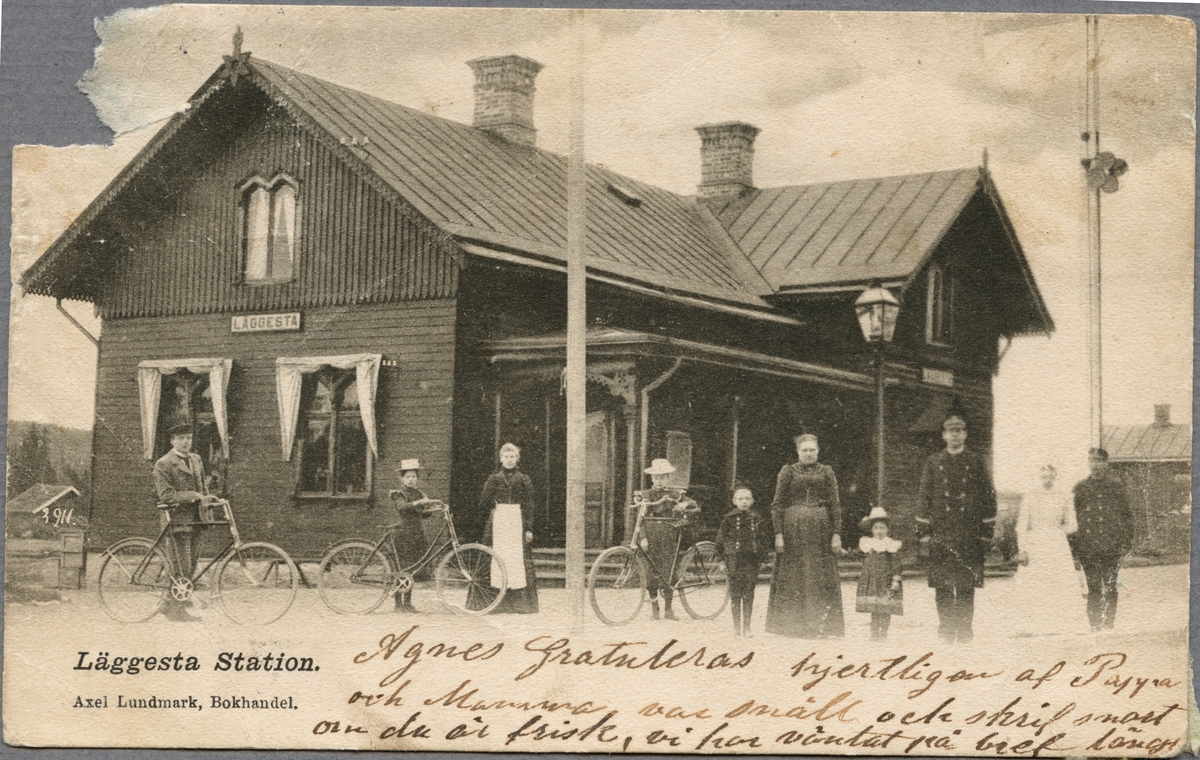 LÄGGESTA
3911
Läggesta Station.
Axel Lundmark, Bokhandel.
Agnes Gratuleras hjertligen af Pappa
och Mamma, var snäll och skrif snart
om du är frisk, vi har väntat på bref länge